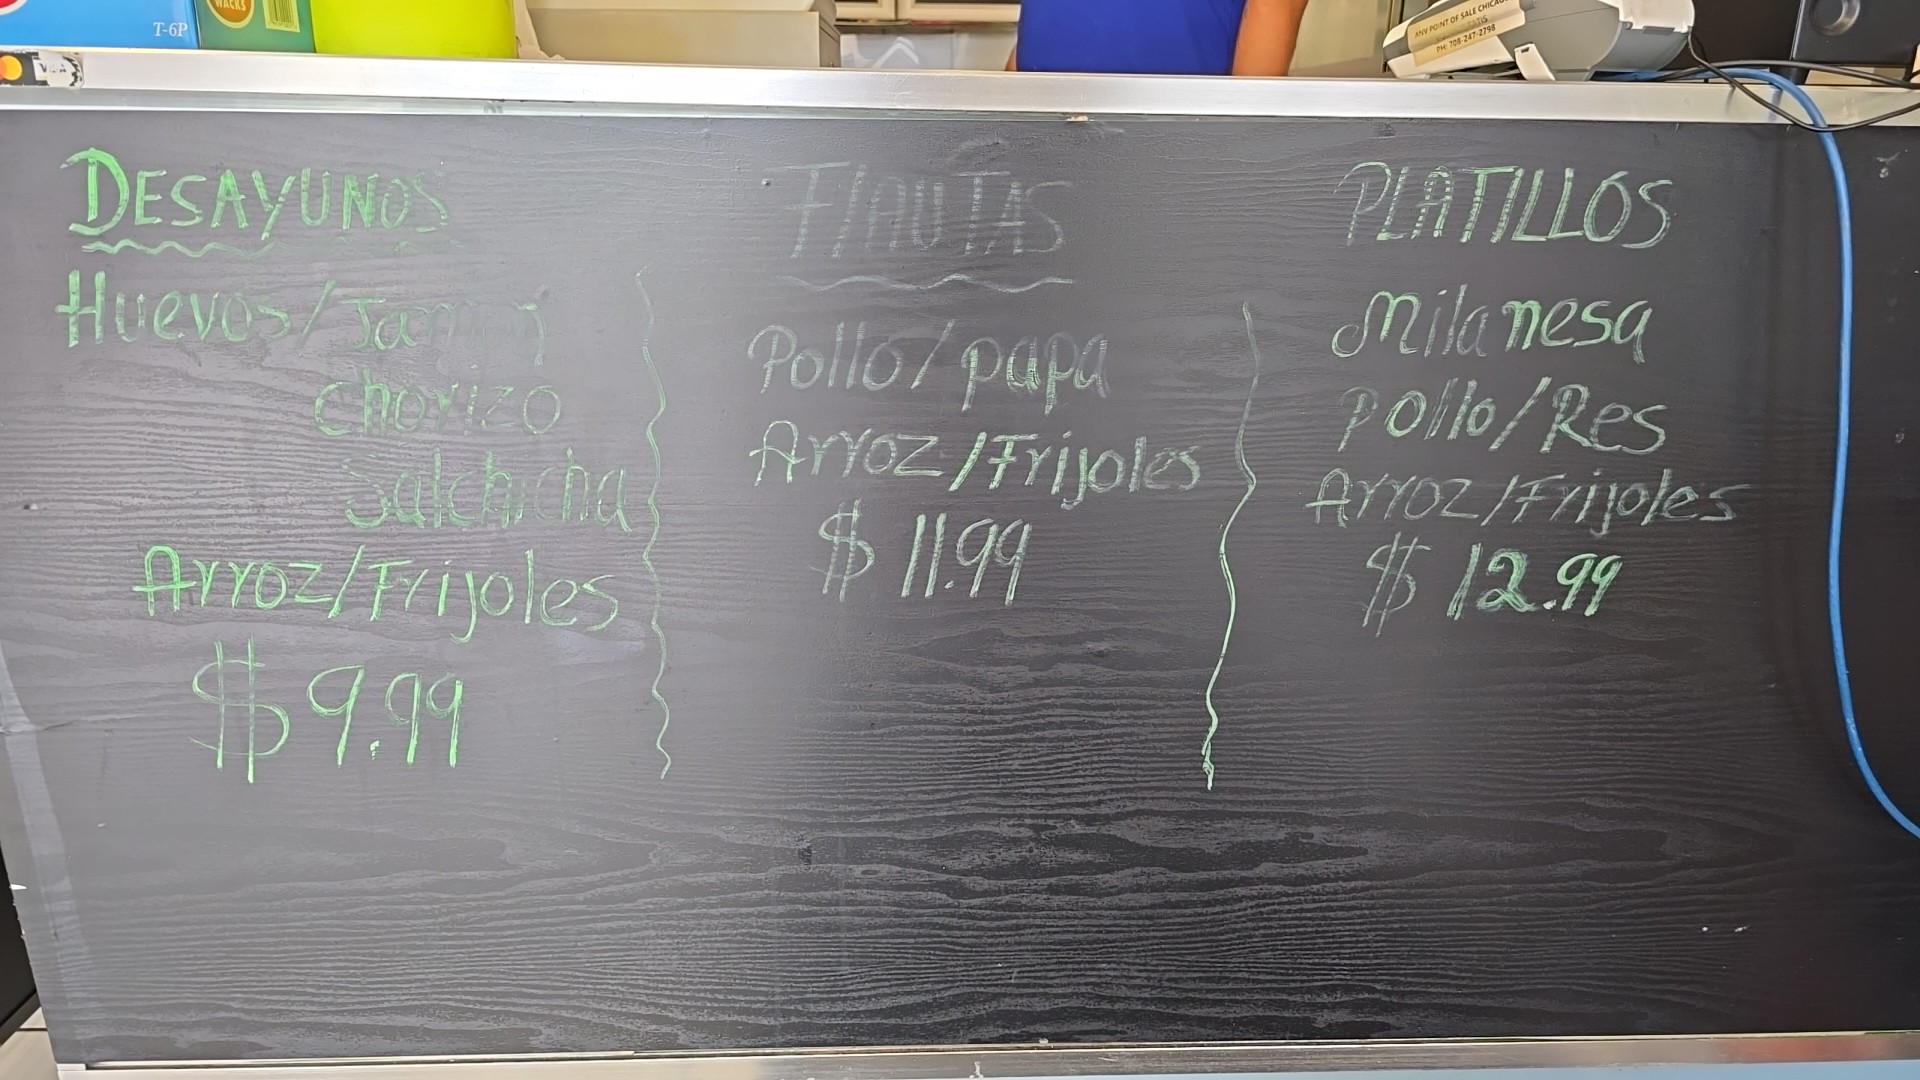 WACKS
T-6P
VISA
ANV POINT OF SALE CHICAGO
PH: 708-247-2798
DESAYUNOS
Huevos/Jamón
Chorizo
Salchicha
Arroz/Frijoles
$9.99
FlAUTAS
Pollo/papa
Arroz/Frijoles
$11.99
PLATILLOS
Milanesa
Pollo/Res
Arroz/Frijoles
$12.99